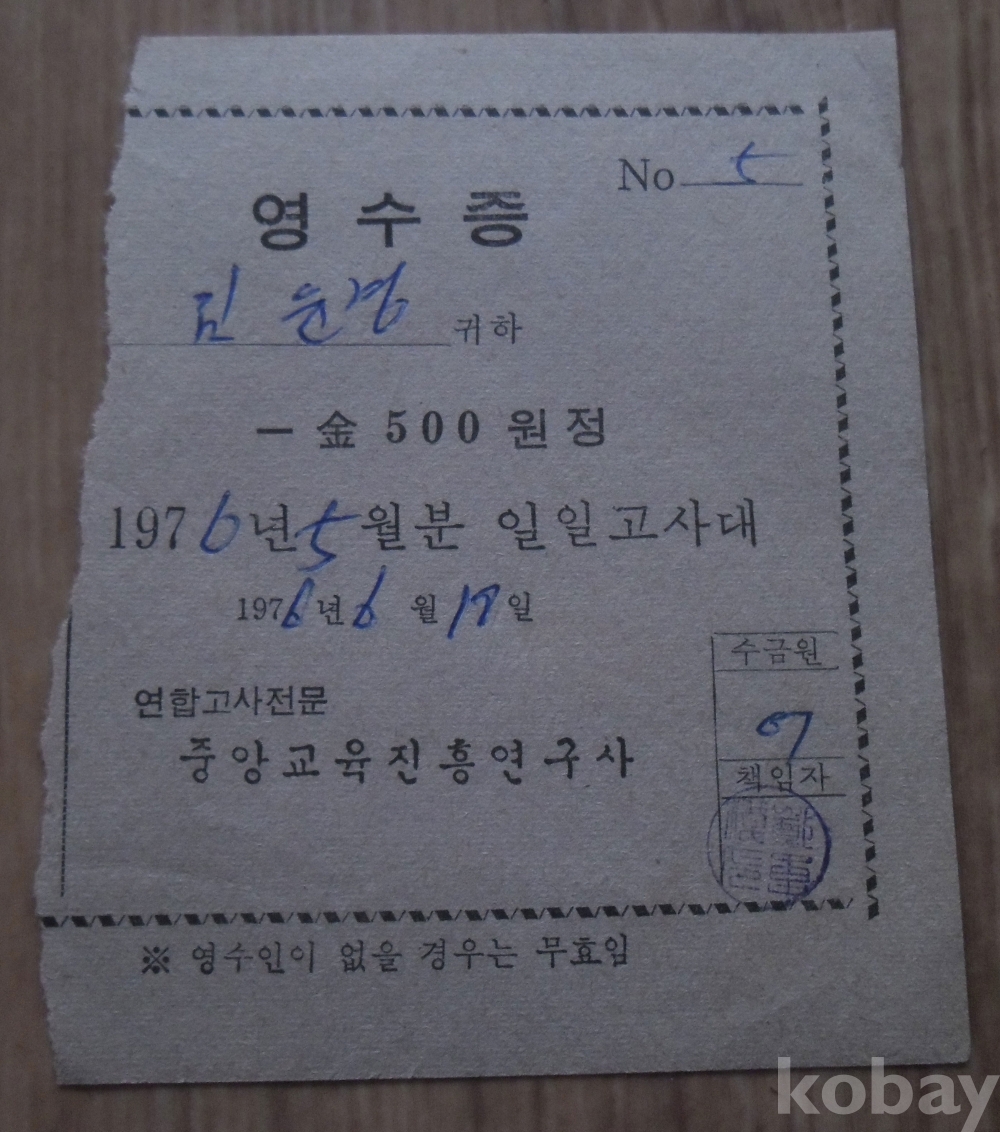 No 5
영수증
김윤경 귀하
一金 500 원정
1976년 5월분 일일고사대
1976년 6월 17일
수금원
연합고사전문
중앙교육진흥연구사
책임자
※ 영수인이 없을 경우는 무효임
kobay